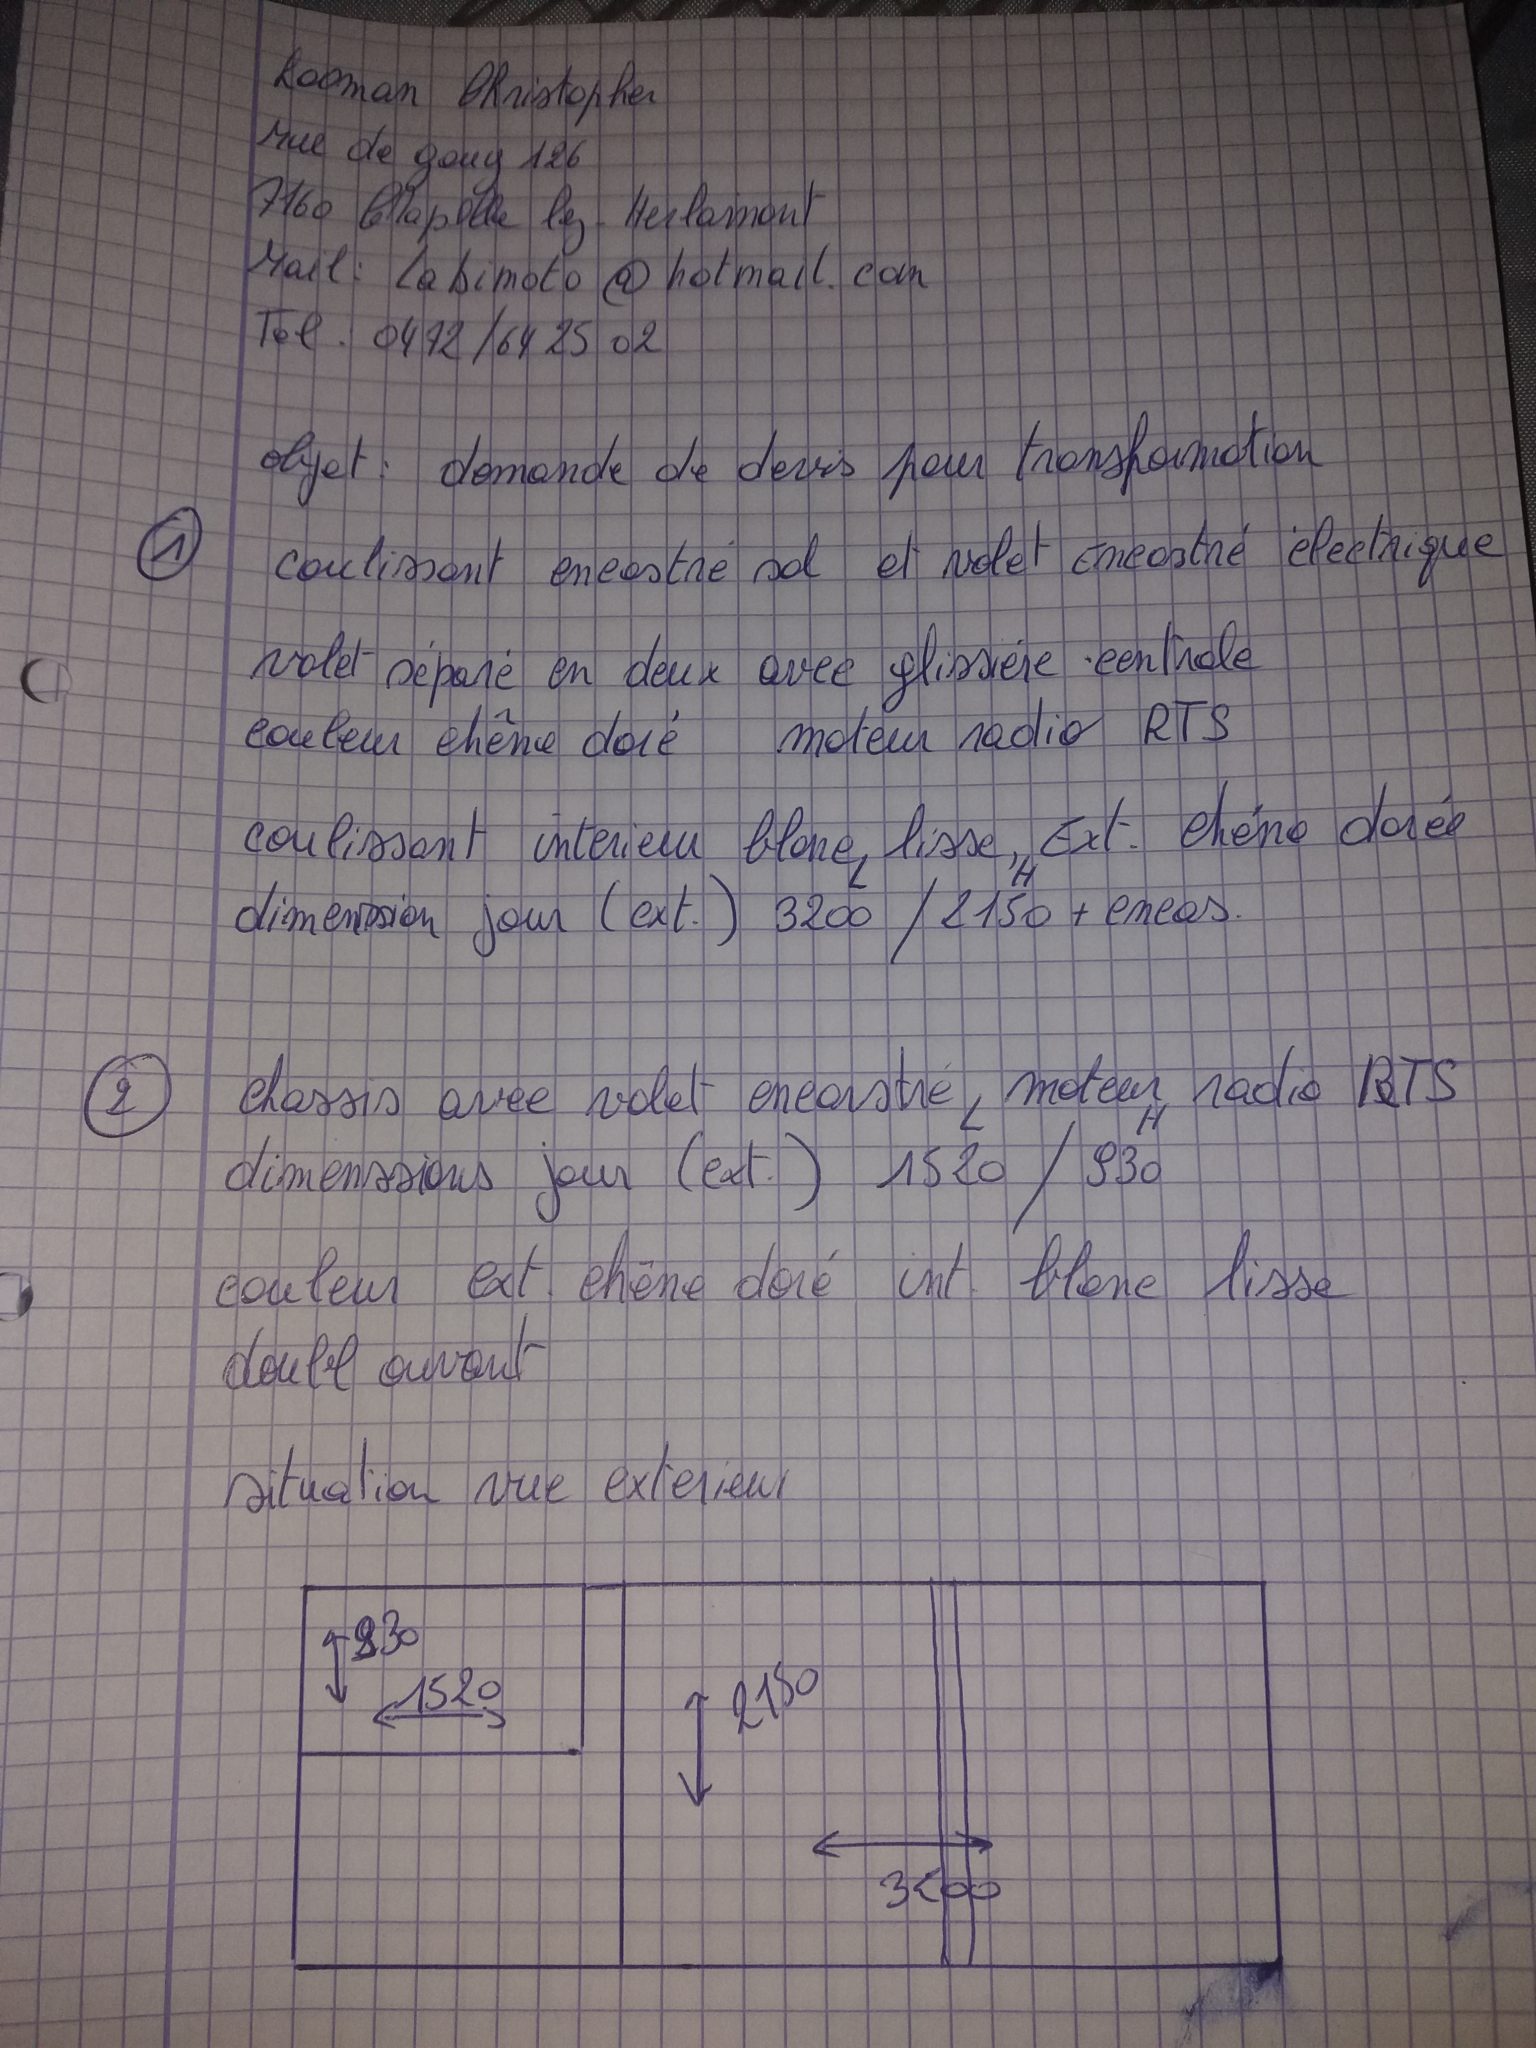 Looman Christopher
Rue de gouy 126
7160 Chapelle lez-Herlaimont
Mail: Labimoto@hotmail.com
Tel. 0472/64 25 02
objet: demande de devis pour transformation
① coulissant encastré sol et volet encastré électrique
volet séparé en deux avec glissière centrale
couleur chêne doré moteur radio RTS
coulissant intérieur blanc lisse, Ext. chêne dorée
L H
dimenssion jour (ext.) 3200 / 2150 + encas.
② chassis avec volet encastré, moteur radio RTS
L H
dimenssions jour (ext.) 1520 / 930
couleur ext. chêne doré int. blanc lisse
doubl ouvant
situation vue exterieur
930
1520
2150
3200